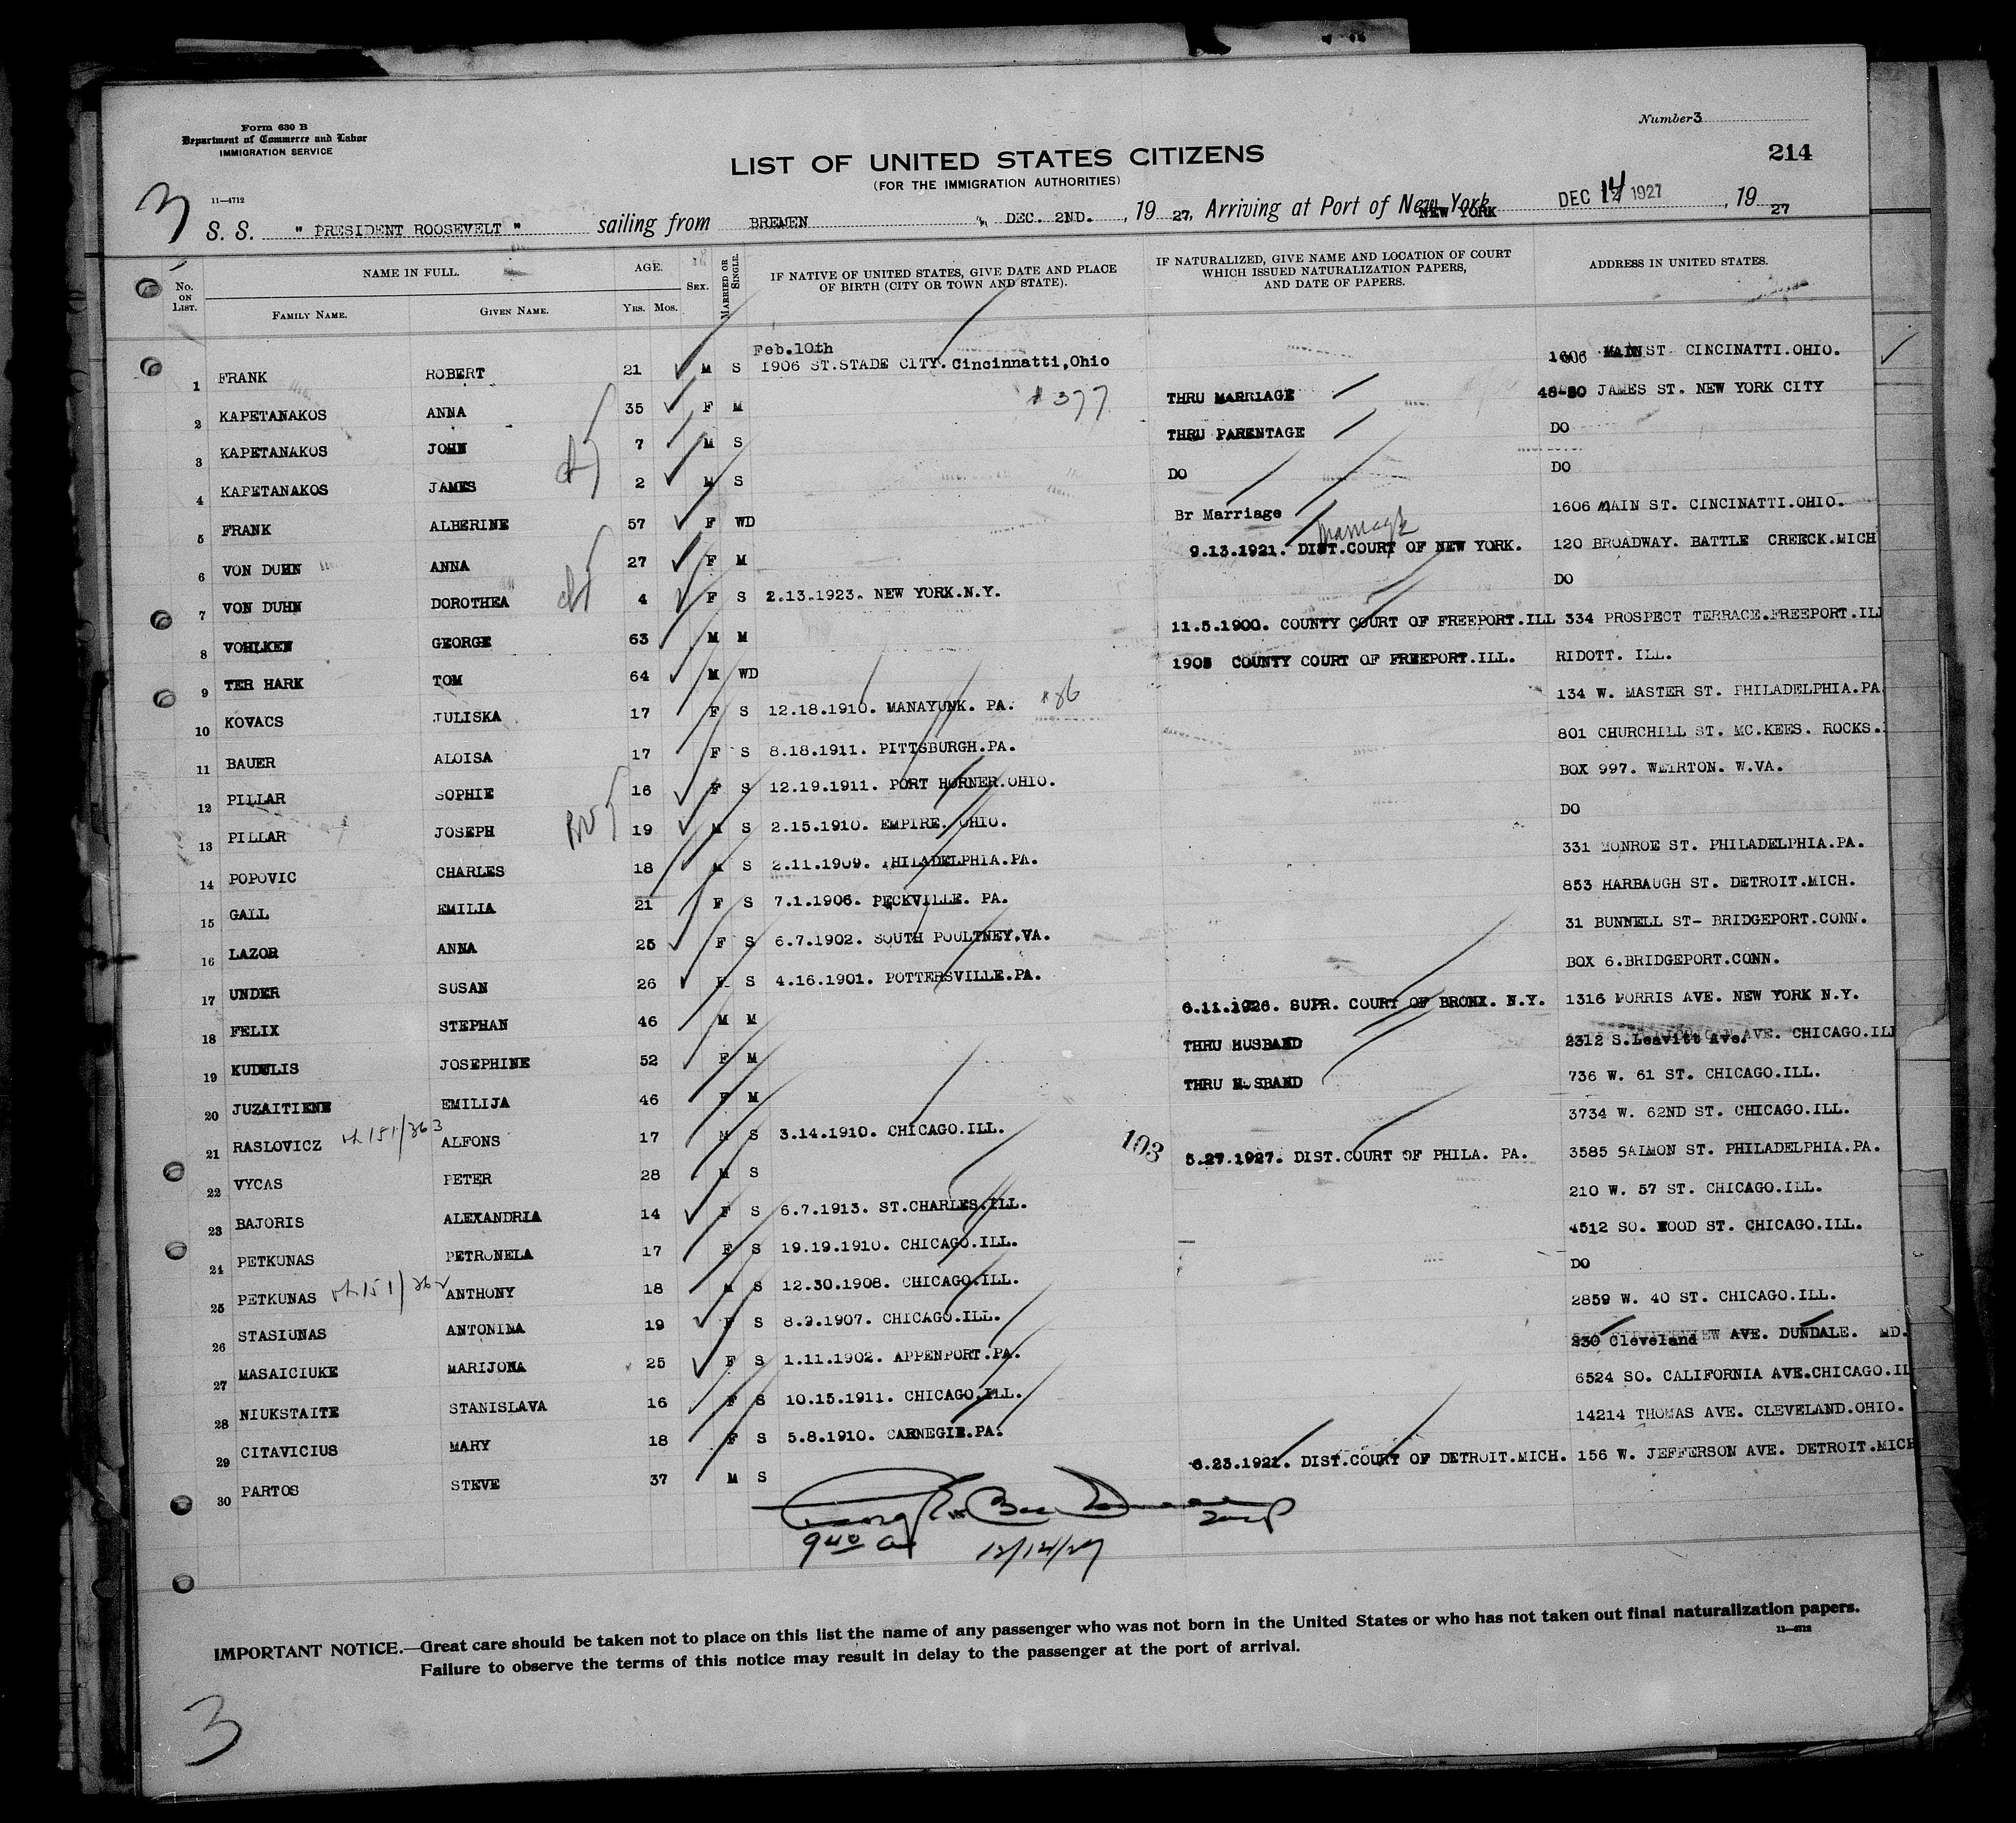 Form 630 B
Department of Commerce and Labor
IMMIGRATION SERVICE
Number 3
214
LIST OF UNITED STATES CITIZENS
(FOR THE IMMIGRATION AUTHORITIES)
3
11—4712
S. S. " PRESIDENT ROOSEVELT " sailing from BREMEN , DEC. 2ND. , 19 27, Arriving at Port of New York NEW YORK DEC 14 1927 , 19 27
No. ON LIST. NAME IN FULL. FAMILY NAME. GIVEN NAME. AGE. YRS. MOS. SEX. MARRIED OR SINGLE. IF NATIVE OF UNITED STATES, GIVE DATE AND PLACE OF BIRTH (CITY OR TOWN AND STATE). IF NATURALIZED, GIVE NAME AND LOCATION OF COURT WHICH ISSUED NATURALIZATION PAPERS, AND DATE OF PAPERS. ADDRESS IN UNITED STATES.
Feb.10th
1 FRANK ROBERT 21 M S 1906 ST.STADE CITY. Cincinnatti,Ohio 1606 MAIN ST. CINCINATTI.OHIO.
2 KAPETANAKOS ANNA 35 F M #377 THRU MARRIAGE 48-50 JAMES ST. NEW YORK CITY
3 KAPETANAKOS JOHN 7 M S THRU PARENTAGE DO
4 KAPETANAKOS JAMES 2 M S DO DO
5 FRANK ALBERINE 57 F WD Br Marriage 1606 MAIN ST. CINCINATTI.OHIO.
marriage
6 VON DUHN ANNA 27 F M 9.13.1921. DIST.COURT OF NEW YORK. 120 BROADWAY. BATTLE CREECK.MICH
7 VON DUHN DOROTHEA 4 F S 2.13.1923. NEW YORK.N.Y. DO
8 VOHLKEN GEORGE 63 M M 11.5.1900. COUNTY COURT OF FREEPORT.ILL 334 PROSPECT TERRACE.FREEPORT.ILL
9 TER HARK TOM 64 M WD COUNTY COURT OF FREEPORT.ILL. RIDOTT. ILL.
10 KOVACS JULISKA 17 F S 12.18.1910. MANAYUNK. PA. 134 W. MASTER ST. PHILADELPHIA.PA
11 BAUER ALOISA 17 F S 8.18.1911. PITTSBURGH.PA. 801 CHURCHILL ST. MC.KEES. ROCKS.
12 PILLAR SOPHIE 16 F S 12.19.1911. PORT HORNER.OHIO. BOX 997. WEIRTON. W.VA.
13 PILLAR JOSEPH 19 M S 2.15.1910. EMPIRE. OHIO. DO
14 POPOVIC CHARLES 18 M S 2.11.1909. PHILADELPHIA.PA. 331 MONROE ST. PHILADELPHIA.PA.
15 GALL EMILIA 21 F S 7.1.1906. PECKVILLE. PA. 853 HARBAUGH ST. DETROIT.MICH.
16 LAZOR ANNA 25 F S 6.7.1902. SOUTH POULTNEY.VA. 31 BUNNELL ST- BRIDGEPORT.CONN.
17 UNDER SUSAN 26 F S 4.16.1901. POTTERSVILLE.PA. BOX 6.BRIDGEPORT.CONN.
18 FELIX STEPHAN 46 M M 6.11.1926. SUPR. COURT OF BRONX. N.Y. 1316 MORRIS AVE. NEW YORK N.Y.
19 KUDULIS JOSEPHINE 52 F M THRU HUSBAND 2312 S.Leavitt Ave. AVE. CHICAGO.ILL
20 JUZAITIENE EMILIJA 46 F M THRU HUSBAND 736 W. 61 ST. CHICAGO.ILL.
21 RASLOVICZ ALFONS 17 M S 3.14.1910. CHICAGO.ILL. 3734 W. 62ND ST. CHICAGO.ILL.
103
22 VYCAS PETER 28 M S 5.27.1927. DIST.COURT OF PHILA. PA. 3585 SALMON ST. PHILADELPHIA.PA.
23 BAJORIS ALEXANDRIA 14 F S 6.7.1913. ST.CHARLES.ILL. 210 W. 57 ST. CHICAGO.ILL.
24 PETKUNAS PETRONELA 17 F S 19.19.1910. CHICAGO.ILL. 4512 SO. WOOD ST. CHICAGO.ILL.
25 PETKUNAS ANTHONY 18 M S 12.30.1908. CHICAGO.ILL. DO
26 STASIUNAS ANTONINA 19 F S 8.9.1907. CHICAGO.ILL. 2859 W. 40 ST. CHICAGO.ILL.
27 MASAICIUKE MARIJONA 25 F S 1.11.1902. APPENPORT.PA. 230 Cleveland AVE. DUNDALE. MD.
28 NIUKSTAITE STANISLAVA 16 F S 10.15.1911. CHICAGO.ILL. 6524 SO. CALIFORNIA AVE.CHICAGO.IL
29 CITAVICIUS MARY 18 F S 5.8.1910. CARNEGIE.PA. 14214 THOMAS AVE. CLEVELAND.OHIO.
30 PARTOS STEVE 37 M S 6.23.1921. DIST.COURT OF DETROIT.MICH. 156 W. JEFFERSON AVE. DETROIT.MICH
12/14/27
IMPORTANT NOTICE.—Great care should be taken not to place on this list the name of any passenger who was not born in the United States or who has not taken out final naturalization papers.
Failure to observe the terms of this notice may result in delay to the passenger at the port of arrival.
11—4712
3